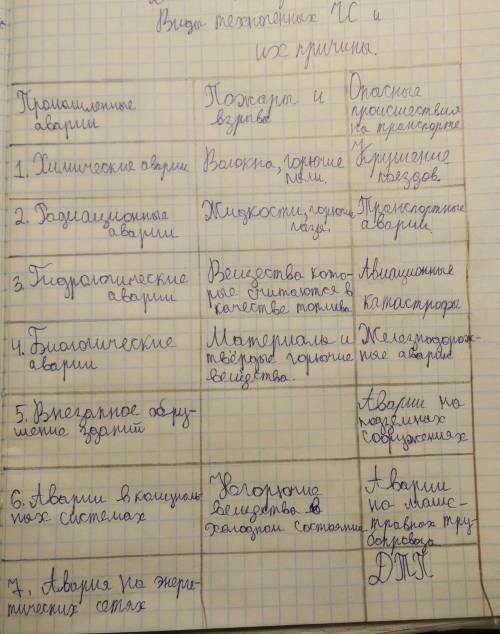 Виды техногенных ЧС и
их причины.
Промышленные
аварии
Пожары и
взрывы
Опасные
происшествия
на транспорте
1. Химические аварии
Волокна, горючие
пыли.
Крушение
поездов.
2. Радиационные
аварии
Жидкости, горючие
газы.
Транспортные
аварии.
3. Гидрологические
аварии
Вещества кото-
рые считаются в
качестве топлива
Авиационные
катастрофы
4. Биологические
аварии
Материалы и
твёрдые горючие
вещества.
Железнодорож-
ные аварии
5. Внезапное обру-
шение зданий
Аварии на
подземных
сооружениях
6. Аварии в комуналь
ных системах
Негорючие
вещества в
холодном состоянии
Аварии
на магис-
тральных тру-
бопровода
7. Авария на энерге-
тических сетях
ДТП